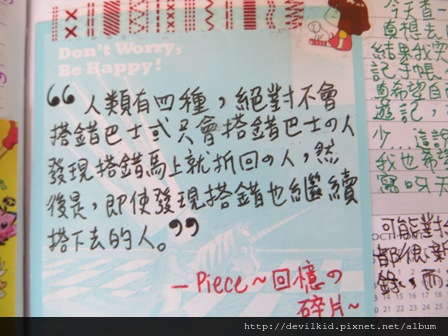 Don't Worry,
Be Happy!
“人類有四種，絕對不會
搭錯巴士或只會搭錯巴士の人
發現搭錯馬上就折回の人，然
後是，即使發現搭錯也繼續
搭下去的人。”
—Piece~回憶の
碎片~
今天看
結果我
記手帳
遊記，
少…這
我也
可能對
都很新
錄，而
http://devilkid.pixnet.net/album